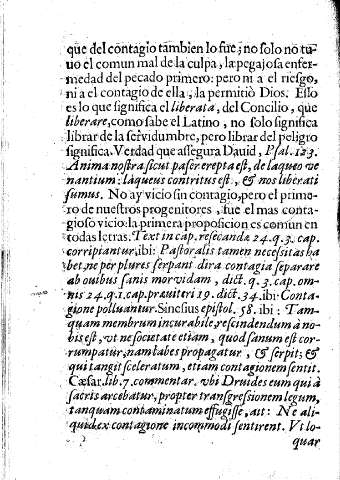 que del contagio tambien lo fue; no solo no tu-
uo el comun mal de la culpa, la pegajosa enfer-
medad del pecado primero: pero ni a el riesgo,
ni a el contagio de ella, la permitiò Dios. Esso
es lo que significa el liberata, del Concilio, que
liberare, como sabe el Latino, no solo significa
librar de la seruidumbre, pero librar del peligro
significa. Verdad que assegura Dauid, Psal. 123.
Anima nostra sicut passer erepta est, de laqueo ve-
nantium: laqueus contritus est, & nos liberati
sumus. No ay vicio sin contagio, pero el prime-
ro de nuestros progenitores, fue el mas conta-
gioso vicio: la primera proposicion es comun en
todas letras. Text in cap. resecandæ 24. q. 3. cap.
corripiantur, ibi: Pastoralis tamen necessitas ha
bet, ne per plures serpant dira contagia separare
ab ouibus sanis morvidam, dict. q. 3. cap. om-
nis 24. q. 1. cap. præuiteri 19. dict. 34. ibi: Conta-
gione polluantur. Sinesius epistol. 58. ibi: Tam-
quam membrum incurabile, rescindendum à no-
bis est, vt ne societate etiam, quod sanum est cor-
rumpatur, nam tabes propagatur, & serpit; &
qui tangit sceleratum, etiam contagionem sentit.
Cæsar. lib. 7. commentar. vbi Druides eum qui à
sacris arcebatur, propter transgressionem legum,
tanquam contaminatum effugisse, ait: Ne ali-
quid ex contagione incommodi sentirent. Vt lo-
quar